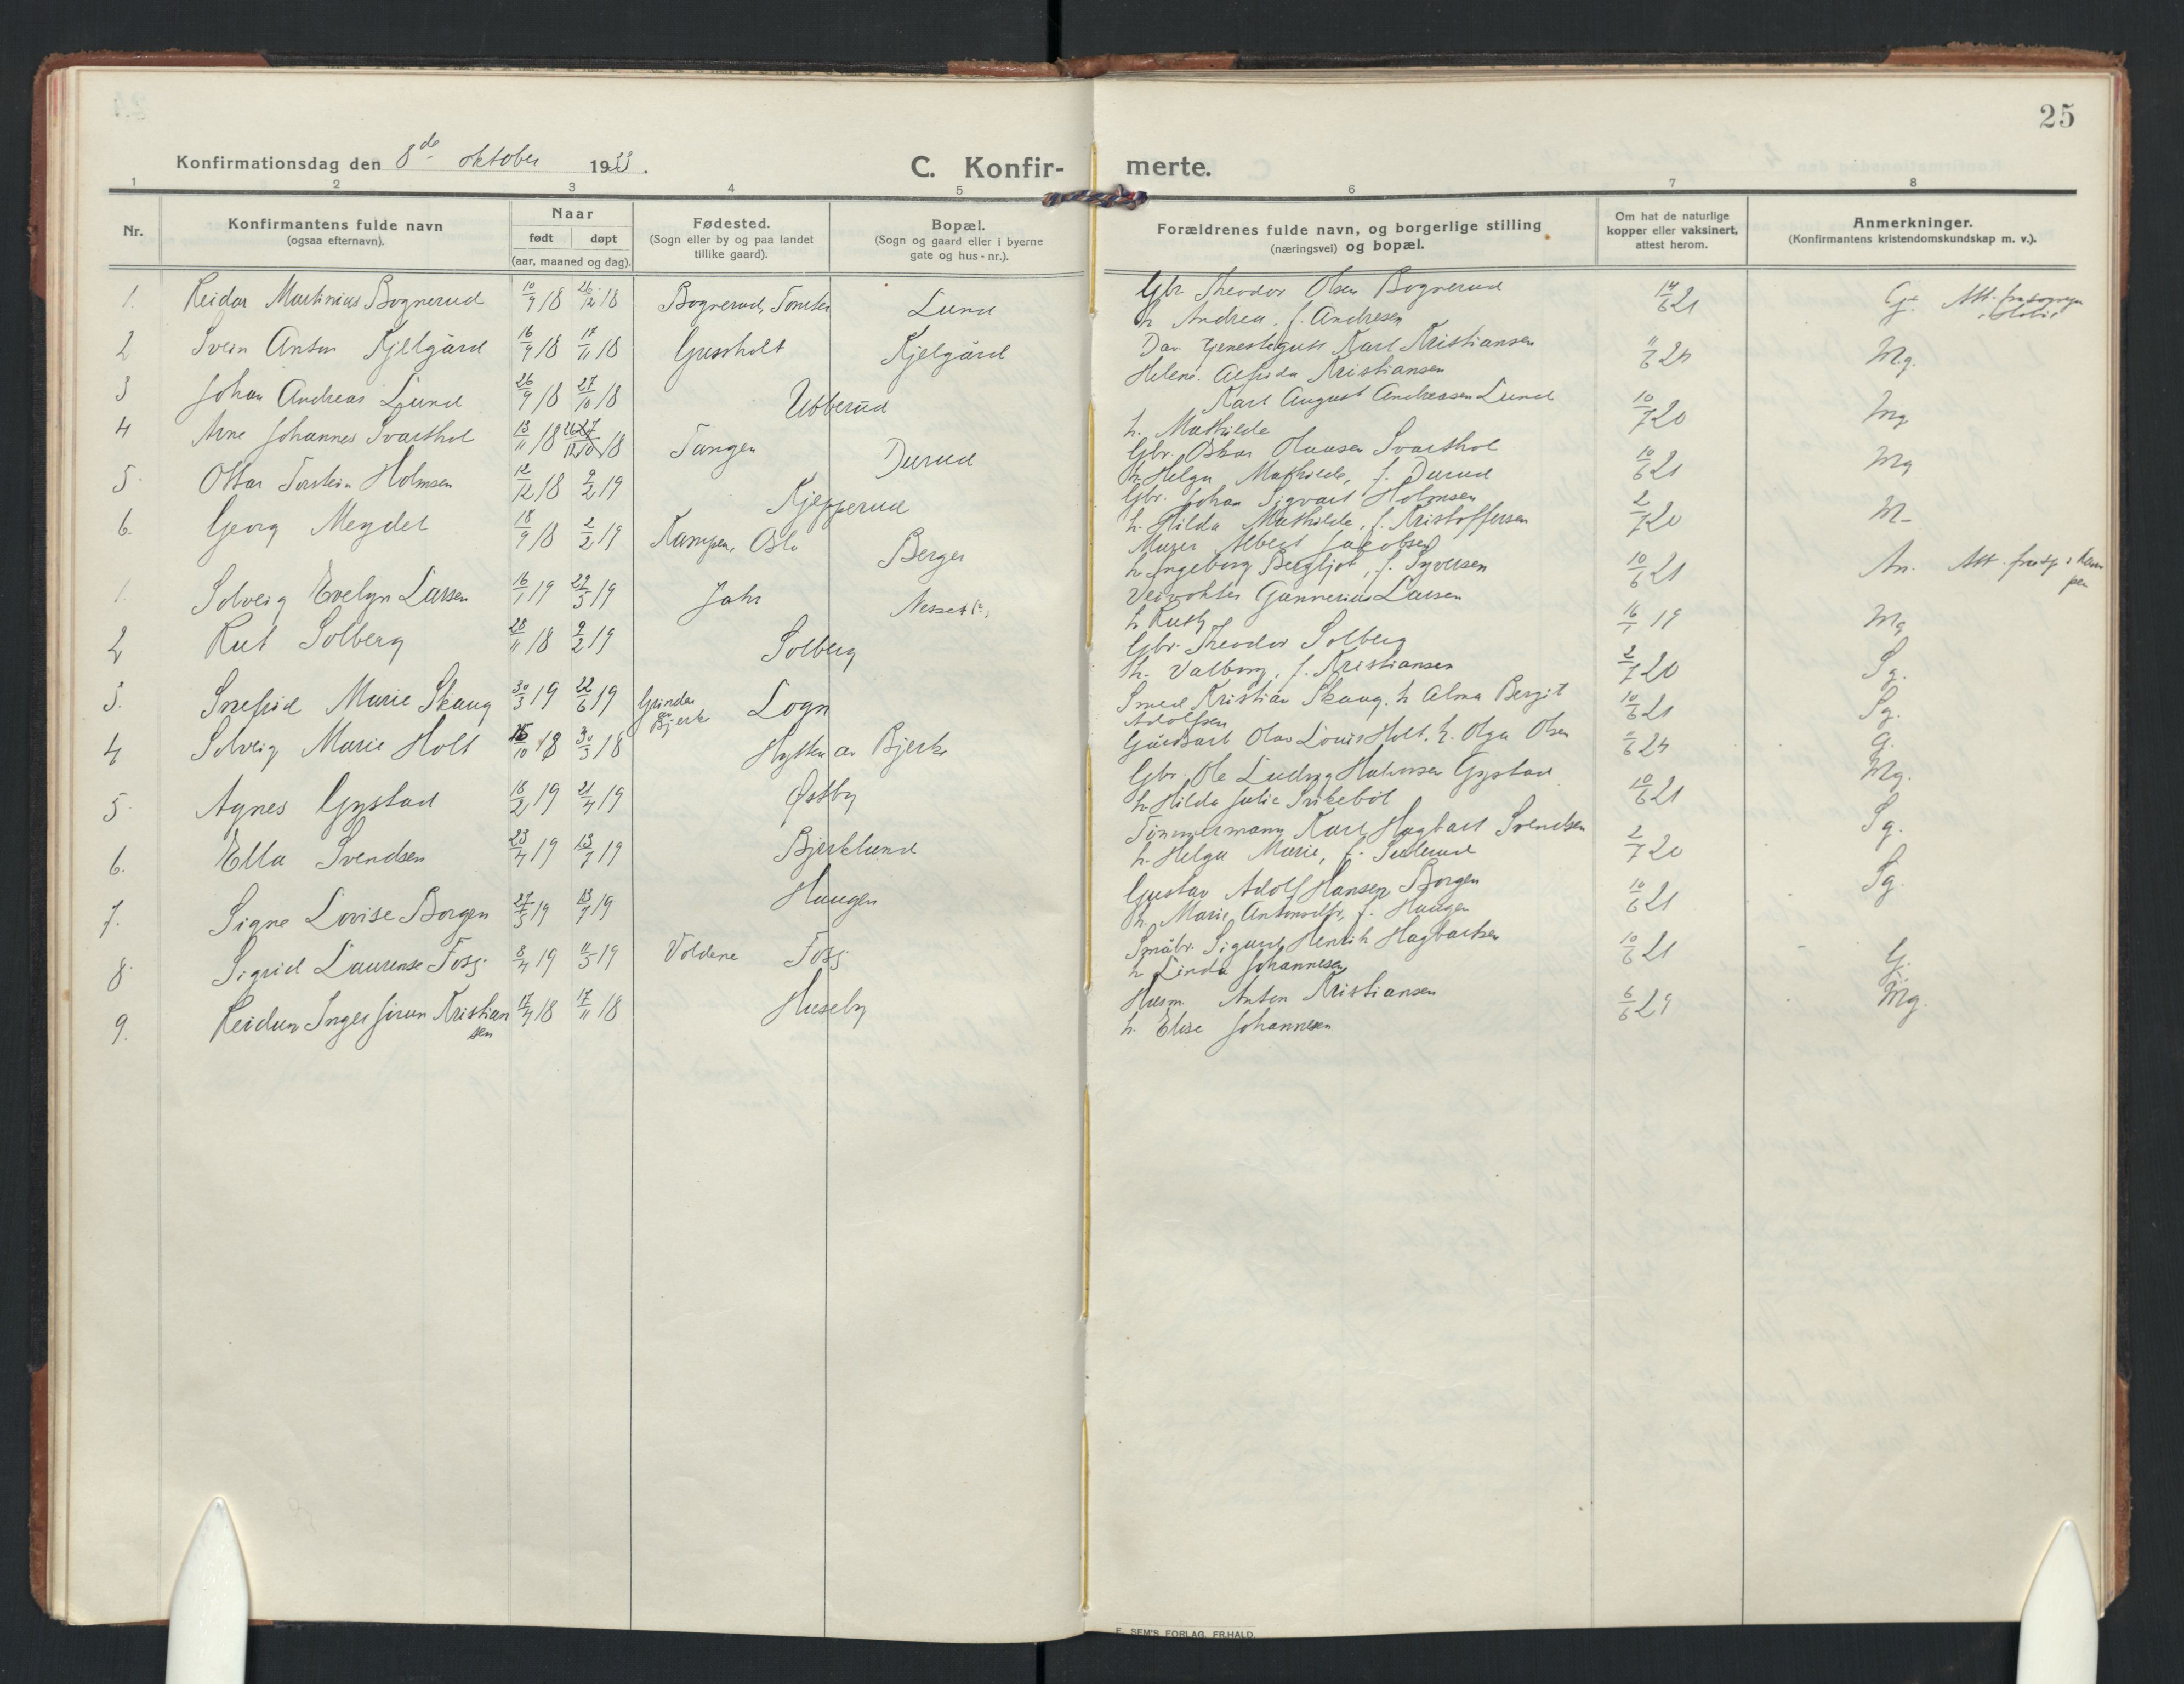 25
Konfirmationsdag den 8de oktober 1933.
C. Konfir- merte.
1 2 3 4 5 6 7 8
Nr.
Konfirmantens fulde navn
(ogsaa efternavn).
Naar
født døpt
(aar, maaned og dag).
Fødested.
(Sogn eller by og paa landet
tillike gaard).
Bopæl.
(Sogn og gaard eller i byerne
gate og hus-nr.).
Forældrenes fulde navn, og borgerlige stilling
(næringsvei) og bopæl.
Om hat de naturlige
kopper eller vaksinert,
attest herom.
Anmerkninger.
(Konfirmantens kristendomskundskap m. v.).
1. Reidar Martinius Bognerud 10/9 18 26/12 18 Bognerud, Lund
Gbr. Theodor Olsen Bognerud
h. Andrea, f. Andresen
14/6 21 G.
2 Svein Anton Kjelgård 16/9 18 17/11 18 Gussholt Kjelgård
Dav. tjenestegutt Karl Kristiansen
Helene Alfrida Kristiansen
11/6 24 Mg.
3 Johan Andreas Lund 26/9 18 27/10 18 Ubberud
Karl August Andreasen Lund
h. Mathilde
10/7 20 Mg
4 Arne Johannes Svarthol 13/11 18 26/12 18 Tangen Durud
Gbr. Oskar Hansen Svarthol
h. Helga Mathilde, f. Durud
10/6 21 Mg
5. Ottar Torstein Holmsen 12/12 18 9/2 19 Kjepperud
Gbr. Johan Sigvart Holmsen
h. Hilda Mathilde, f. Kristoffersen
2/7 20 M-
6. Georg Meydel 18/9 18 2/2 19 Kampen, Oslo Berger
Murer Albert Jacobsen
h. Ingeborg Bergljot, f. Syversen
10/6 21 An. Att. fra sp. i Kam
pen
1. Solveig Evelyn Larsen 16/1 19 29/5 19 Jahr
Veivokter Gunnerius Larsen
h. Ruth
16/1 19 Mg
2 Rut Solberg 28/11 18 9/2 19 Solberg
Gbr. Theodor Solberg
h. Valborg, f. Kristiansen
2/7 20 Sg.
3. Snefrid Marie Skaug 30/3 19 22/6 19 Bjerke Logn
Smed Kristian Skaug. h. Alma Bergit
Adolfsen
10/6 21 Sg.
4 Solveig Marie Holt 10 18 30/3 18 Hytten av Bjerke
Gårdsarb. Olav Louis Holt. h. Olga Olsen
11/6 24 G.
5. Agnes Gystad 18/2 19 21/4 19 Østby
Gbr. Ole Ludvig Halvorsen Gystad
h. Hilda Julie
10/6 21 Mg.
6. Ella Svendsen 23/4 19 13/7 19 Bjerklund
Tømmermann Karl Hagbart Svendsen
h. Helga Marie, f.
2/7 20 Sg.
7. Signe Lovise Borgen 27/5 19 13/7 19 Haugen
Gustav Adolf Hansen Borgen
h. Marie f. Haugen
10/6 21 Sg.
8. Sigrid Laurense Foss. 8/4 19 11/5 19 Voldene Foss
Småbr. Sigurd Henrik Hagbartsen
h. Linda Johannesen
10/6 21 G.
9. Reidun Inger Jorun Kristian
sen 17/4 18 17/11 18 Huseby
Husm. Anton Kristiansen
h. Elise Johannesen
6/6 29 Mg.
E. SEM'S FORLAG, FR.HALD.